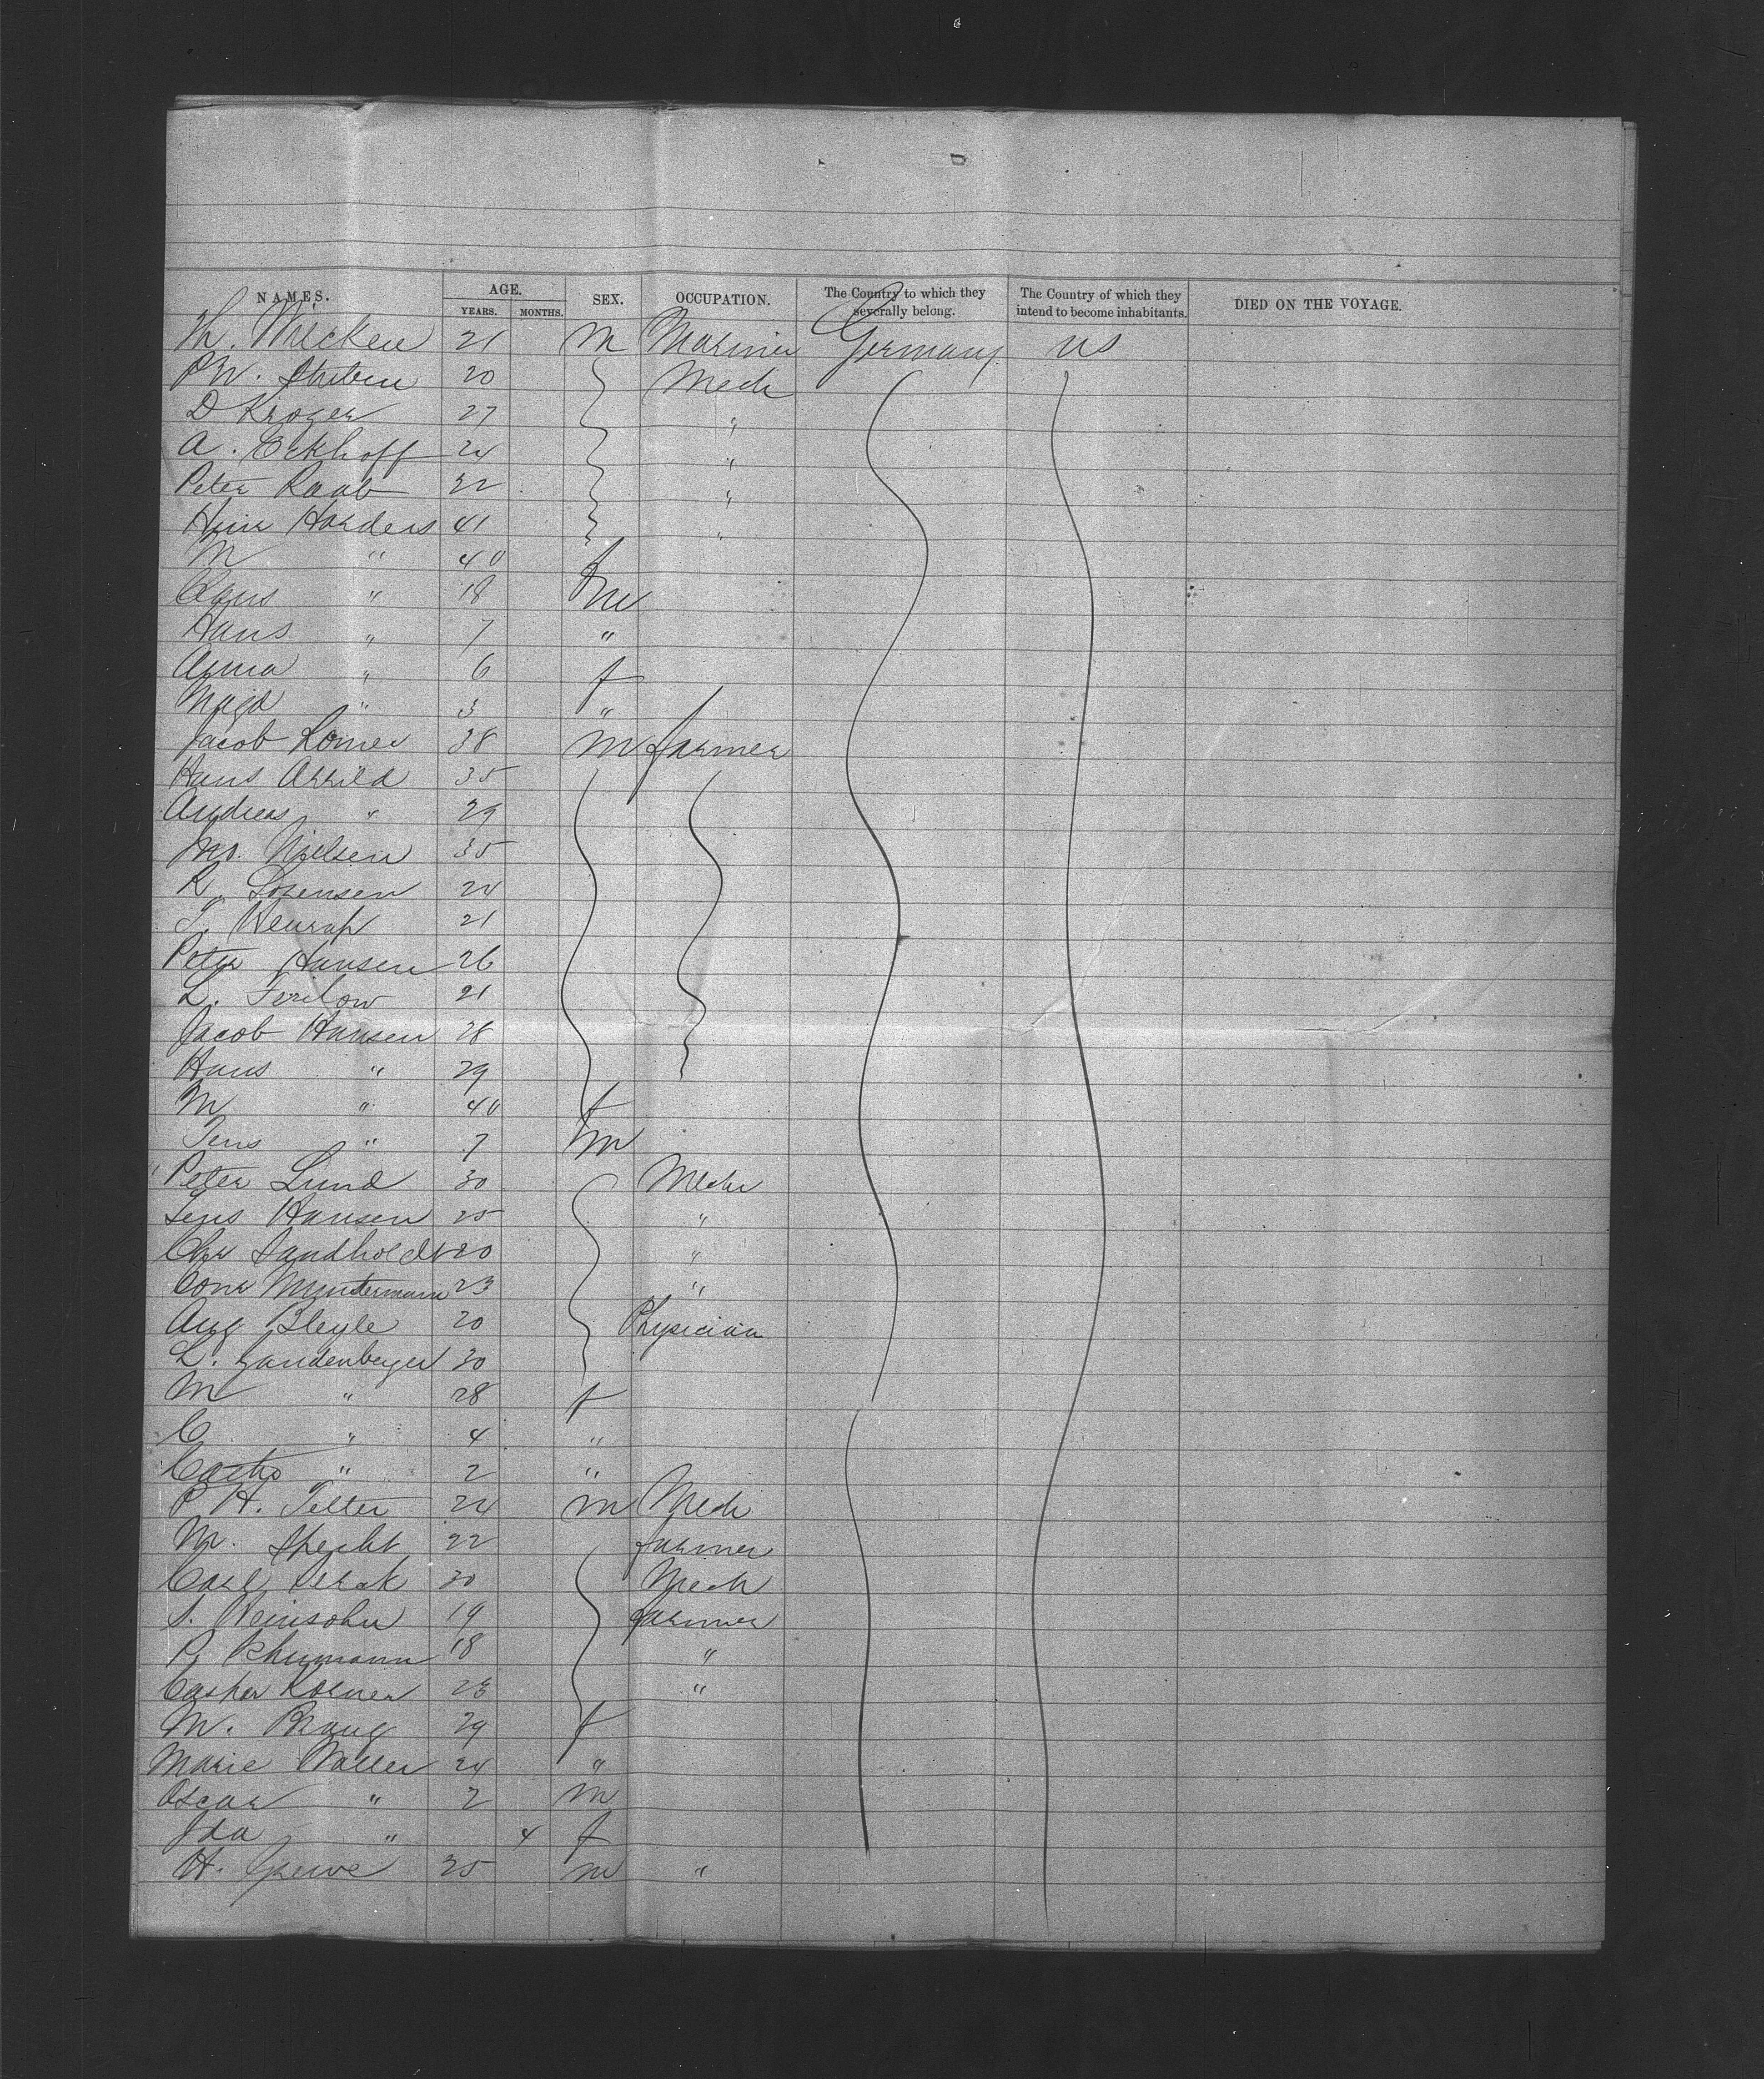 NAMES. AGE. SEX. OCCUPATION. The Country to which they severally belong. The Country of which they intend to become inhabitants. DIED ON THE VOYAGE.
YEARS. MONTHS.
Th. Wilcken 21 M Mariner Germany US
PW. Stuben 20 Mech
D Kroger 27 "
A. Eckhoff 24 "
Peter Raab 32 "
Heinr Harders 41 "
M " 40 f
Claus " 18 M
Hans " 7 "
Anna " 6 f
Magd " 3 "
Jacob Romer 38 M farmer
Hans Arrild 35
Andreas " 29
Mo. Nielsen 35
R. Sorensen 24
T. 21
Peter Hansen 26
L. 21
Jacob Hansen 28
Hans " 29
M " 40 f
Jens " 7 M
Peter Lund 30 Mech
Jens Hansen 25 "
Chr Sandholdt 20 "
Conr Myndermann 23 "
Aug Bleyle 20 Physician
L. Gandenberger 30
M " 28 f
C " 4 "
" 2 "
P H. Tetter 24 M Mech
M. Specht 22 farmer
Carl 30 Mech
S. Weinsohn 19 farmer
P. Schumann 18 "
Casper Korner 23 "
M. Braug 29 f
Marie Waller 24 "
Oscar " 2 M
Ida " 4 f
H. Grewe 25 M "